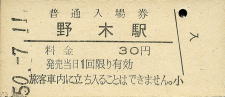 普通入場券
野木駅
料金 30円
発売当日1回限り有効
旅客車内に立ち入ることはできません。小
入
50.-7.11